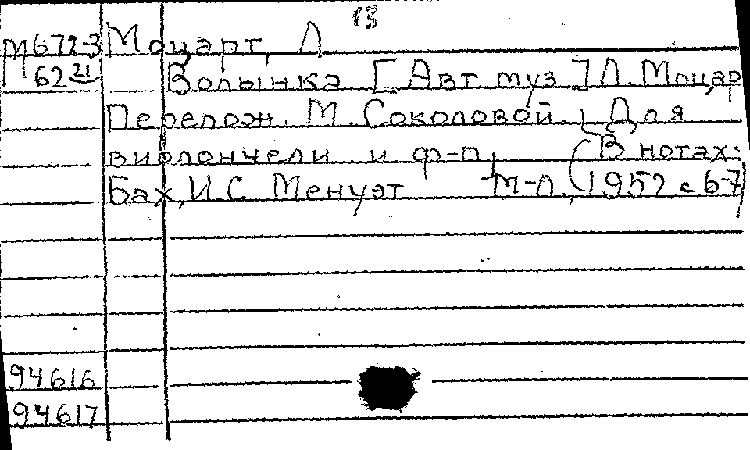 13
М672-3 Моцарт, Л
62 21 Волынка [Авт муз.] Л. Моцар
Перелож. М. Соколовой. Для
виолончели и ф-п. (В нотах:
Бах, И.С. Менуэт М-Л, 1952 с 6-7
94616
94617